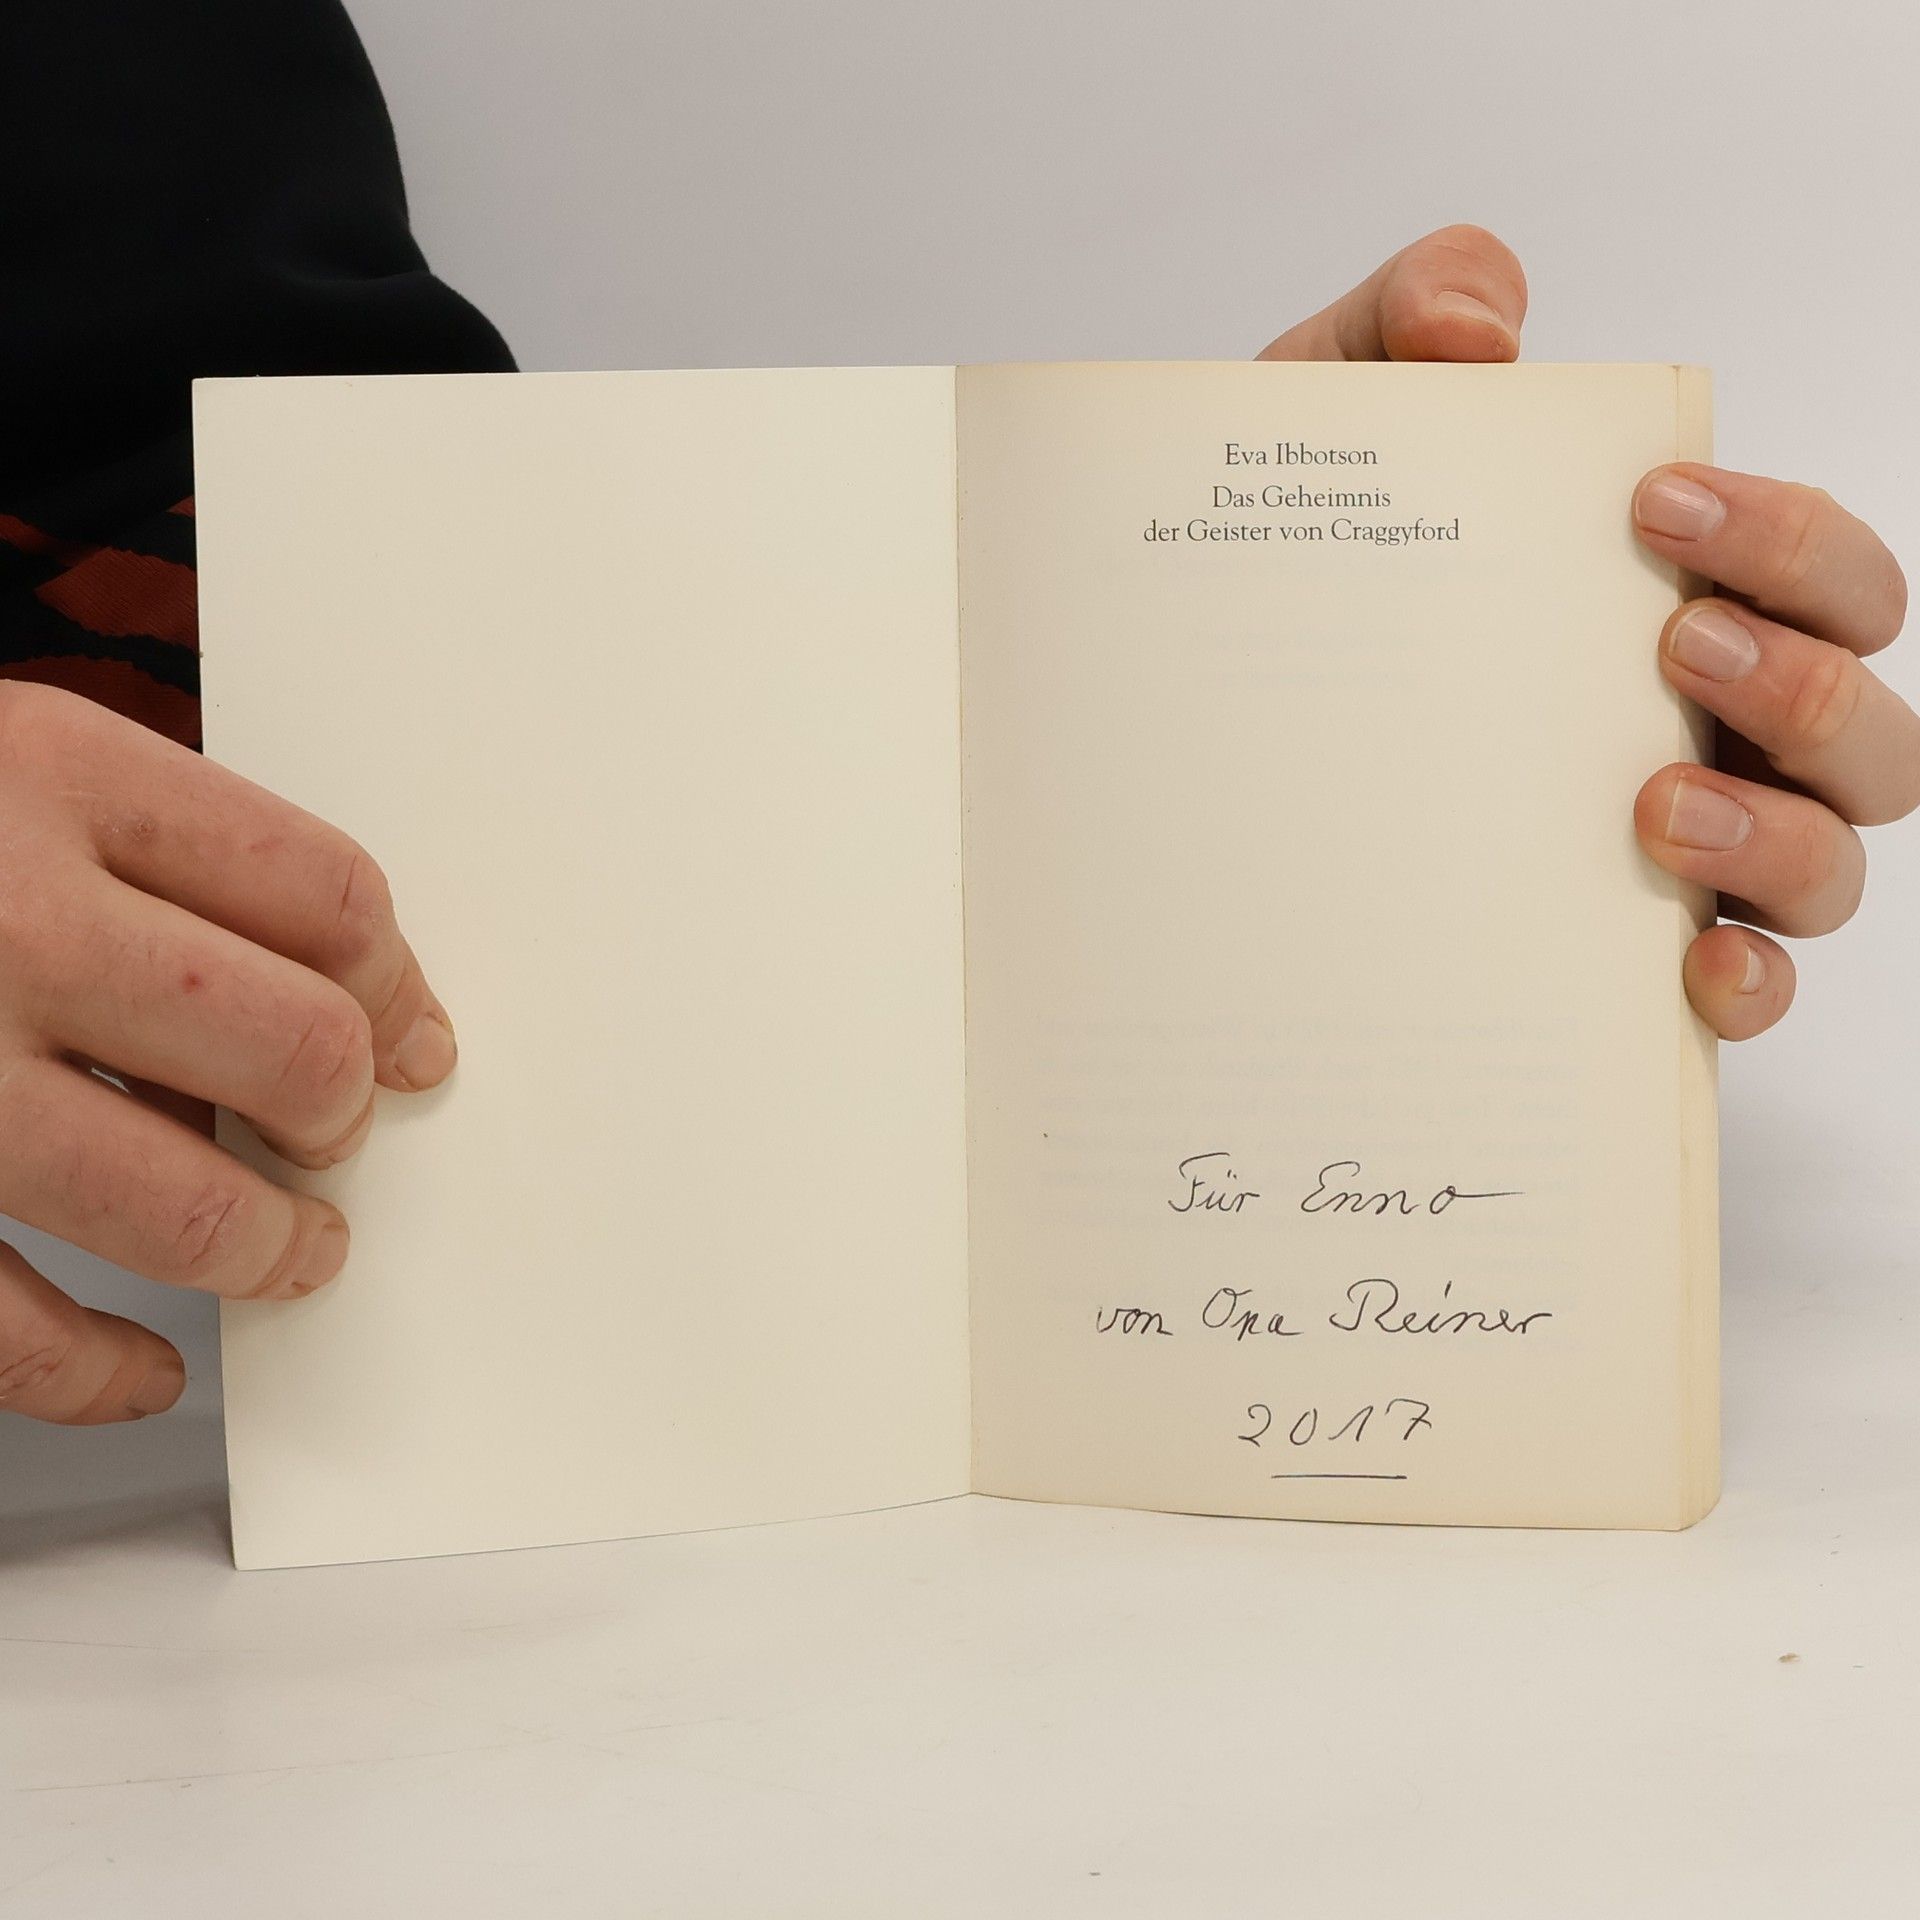 Eva Ibbotson
Das Geheimnis
der Geister von Craggyford
Für Enno
von Opa Reiner
2017